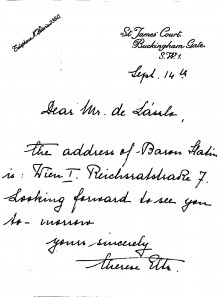 St. James' Court,
Buckingham Gate.
S.W.1.
Sept. 14th
Dear Mr. de László,
the address of Baron
is: Wien I. Reichsratstraße 7.
Looking forward to see you
to-morrow
yours sincerely
Therese